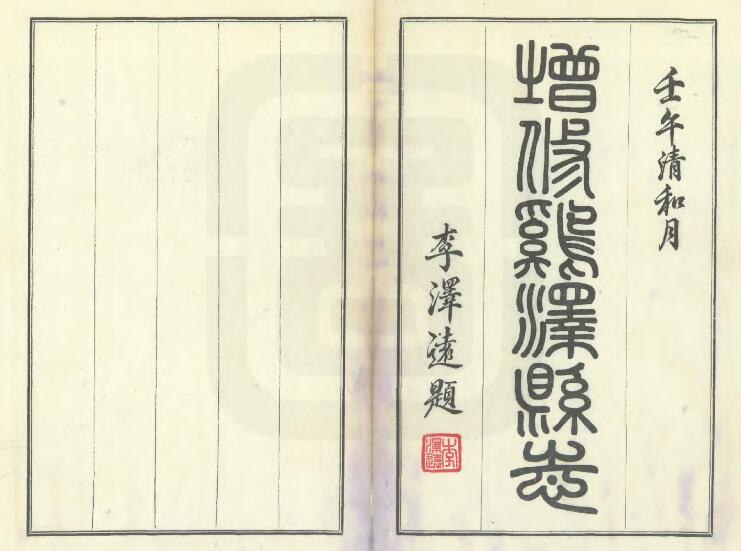 壬午清和月
增修雞澤縣志
李澤遠題